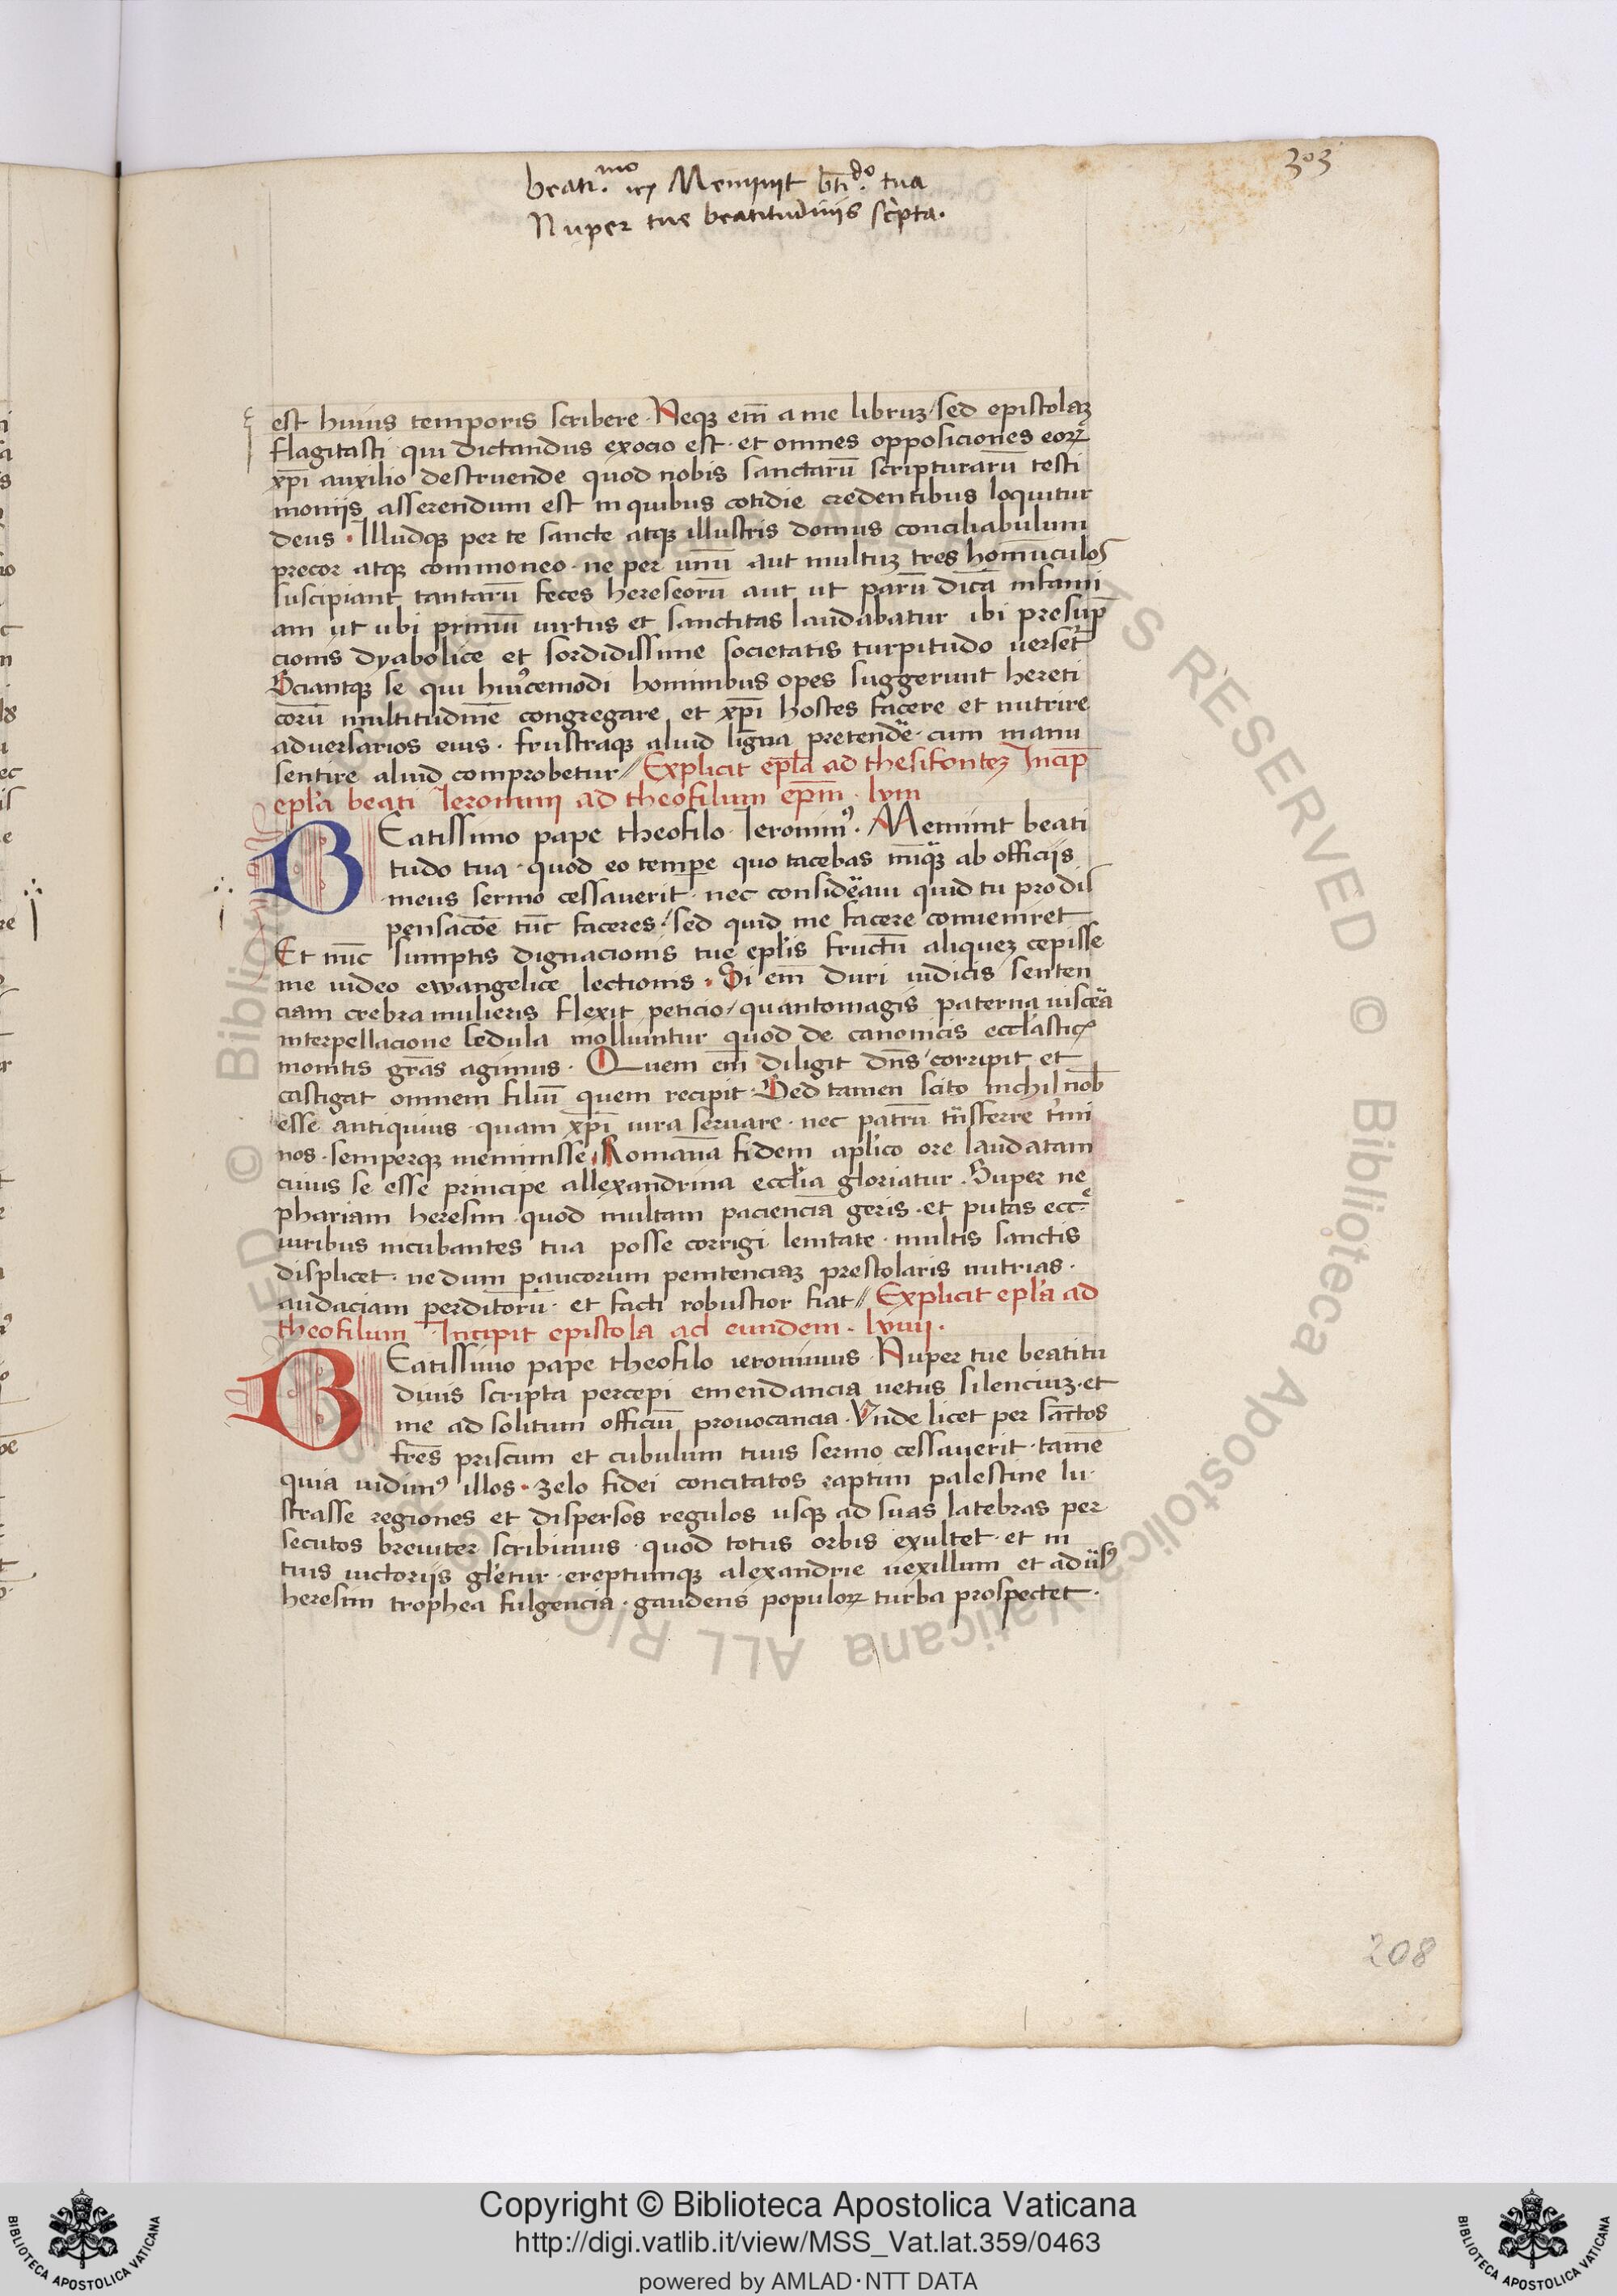 303
beati.mo ier Meminit bti.do tua
Nuper tue beatitudinis sc̄pta.
est huius temporis scribere. Neqꝫ em̄ a me libruꝫ/ sed epistolaꝫ
flagitasti qui dictandus exocio est. et omnes opposiciones eoꝝ
xp̄i auxilio destruende quod nobis sanctarū scripturarū testi
moniis asserendum est in quibus cotidie credentibus loquitur
deus. Illudqꝫ per te sancte atqꝫ illustris domus conciliabulum
precor atqꝫ commoneo. ne per unū aut multuꝫ tres homūculos
suscipiant tantarū feces hereseorū aut ut parū dicā infami
am ut ubi primū uirtus et sanctitas laudabatur ibi presūp
cionis dyabolice et sordidissime societatis turpitudo uerset᷑
Sciantqꝫ se qui huiꝰcemodi hominibus opes suggerunt hereti
corū multitudinē congregare et xp̄i hostes facere et nutrire
aduersarios eius. frustraqꝫ aliud ligna pretendē. cum manu
sentire aliud comprobetur// Explicit ep̄la ad thesifonteꝫ Incip̄
epl̄a beati Ieronimi ad theofilum ep̄m. lviii
BEatissimo pape theofilo Ieronimꝰ. Meminit beati
tudo tua. quod eo temꝑe quo tacebas nūqꝫ ab officiis
meus sermo cessauerit. nec considēaui quid tu pro dis
pensacōe tūc faceres/ sed quid me facere conueniret
Et nūc sumptis dignacionis tue epl̄is fructū aliqueꝫ cepisse
me uideo ewangelice lectionis. Si em̄ duri iudicis senten
ciam crebra mulieris flexit peticio/ quantomagis paterna uiscēa
interpellacione sedula molliuntur quod de canonicis eccl̄astic̣
monitis grās agimus. Quem em̄ diligit dn̄s/ corripit et
castigat omnem filiū quem recipit. Sed tamen scito nichil nob̄
esse antiquius. quam xp̄i iura seruare. nec patrū trāsferre t᷑mi
nos. semperqꝫ meminisse. Romanā fidem apl̄ico ore laudatam
cuius se esse principe allexandrina eccl̄ia gloriatur. Super ne
phariam heresim. quod multam pacienciā geris. et putas ecc̄e
uiribus incubantes tua posse corrigi lenitate. multis sanctis
displicet. ne dum paucorum penitenciaꝫ prestolaris nutrias.
audaciam perditorū. et facti robustior fiat// Explicit epl̄a ad
theofilum Incipit epistola ad eundem. lviiii.
BEatissimo pape theofilo ieronimus. Nuper tue beatitu
dinis scripta percepi emendancia uetus silenciuꝫ. et
me ad solitum officiū prouocancia. Unde licet per sanctos
frēs priscum et cubulum tuus sermo cessauerit. tamē
quia uidimꝰ illos. zelo fidei concitatos raptim palestine lu
strasse regiones et dispersos regulos usqꝫ ad suas latebras per
secutos breuiter scribimus. quod totus orbis exultet. et in
tuis uictoriis gl̄etur. ereptumqꝫ alexandrie uexillum et aduersꝰ
heresim trophea fulgencia. gaudens populoꝝ turba prospectet.
208
Copyright © Biblioteca Apostolica Vaticana
http://digi.vatlib.it/view/MSS_Vat.lat.359/0463
powered by AMLAD·NTT DATA
BIBLIOTECA APOSTOLICA VATICANA
BIBLIOTECA APOSTOLICA VATICANA